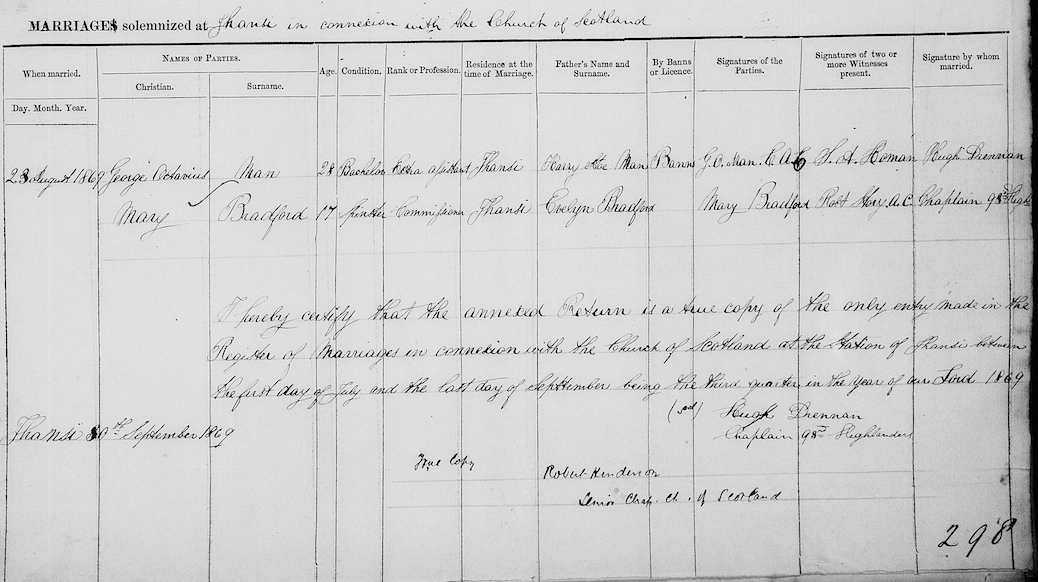 MARRIAGES solemnized at Jhansi in connexion with the Church of Scotland
When married. Names of Parties. Age. Condition. Rank or Profession. Residence at the time of Marriage. Father's Name and Surname. By Banns or Licence. Signatures of the Parties. Signatures of two or more Witnesses present. Signature by whom married.
Christian. Surname.
Day. Month. Year.
23 August 1869 George Octavius Man 28 Bachelor Extra assistant Jhansi Harry Man Banns G. O. Man. E. A. C. S. A. Homan Hugh Drennan
Mary Bradford 17 Spinster Commissioner Jhansi Evelyn Bradford Mary Bradford Robt A. C. Chaplain 98th
I hereby certify that the annexed Return is a true copy of the only entry made in the
Register of Marriages in connexion with the Church of Scotland at the Station of Jhansi between
the first day of July and the last day of September being the third quarter, in the Year of our Lord 1869
(sd) Hugh Drennan
Jhansi 30th September 1869 Chaplain 98th Highlanders
True Copy Robert Henderson
Senior Chap. Ch. of Scotland
298